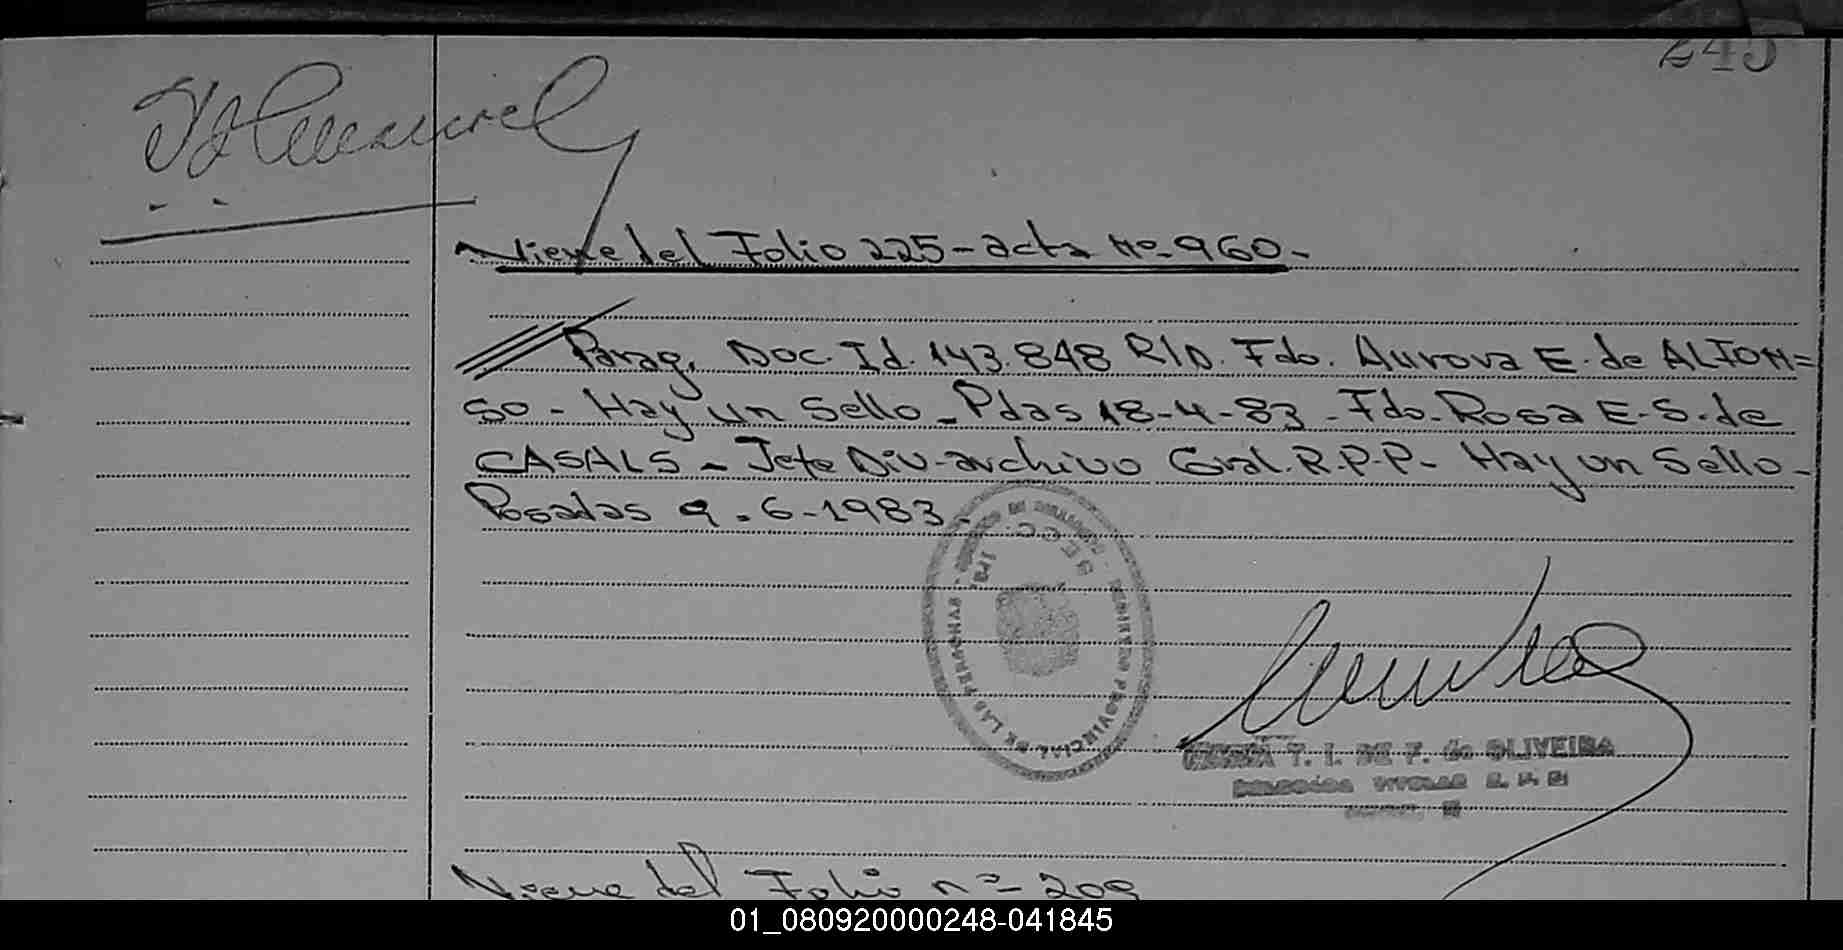 245
Viene del Folio 225 - acta Nº 960 -
Parag. Doc. Id. 143.848 R/D. Fdo. Aurora E. de ALFON=
SO - Hay un Sello - Pdas 18-4-83 - Fdo. Rosa E. S. de
CASALS - Jefe Div-archivo Gral. R.P.P - Hay un Sello -
Posadas 9.6-1983 -
REGISTRO PROVINCIAL DE LAS PERSONAS
T. I. DE F. de OLIVEIRA
Viene del Folio nº 209
01_080920000248-041845